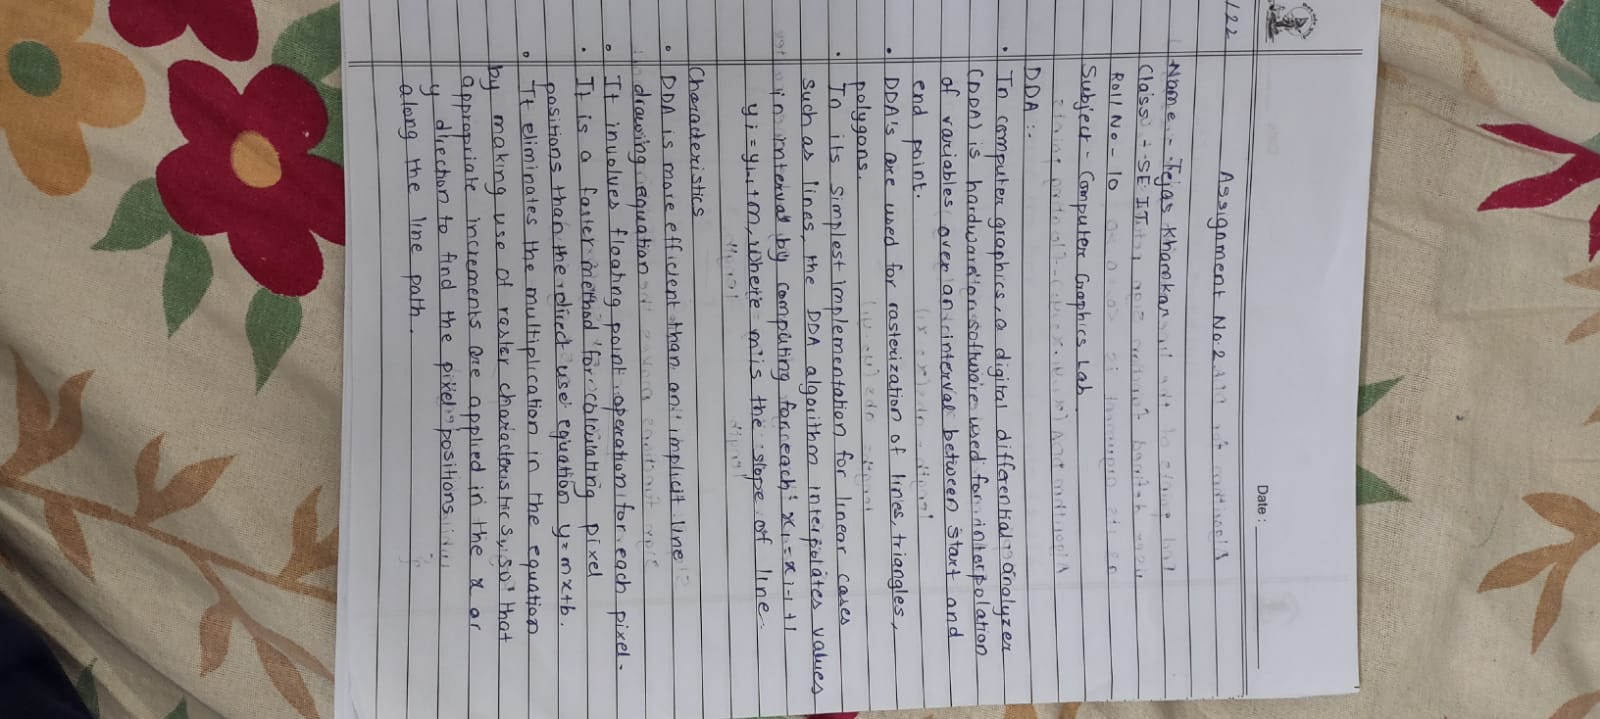 Date :
122
Assignment No. 2.
Name - Tejas Khamkar
Class - SE IT.
Roll No - 10
Subject - Computer Graphics Lab.
DDA :-
• In computer graphics, a digital differential analyzer
(DDA) is hardware or software used for interpolation
of variables over an interval between start and
end point.
• DDA's are used for rasterization of lines, triangles,
polygons.
• In its simplest implementation for linear cases
such as lines, the DDA algorithm interpolates values
in interval by computing for each xi = xi-1 + 1
yi = yi-1 + m, where m is the slope of line.
Characteristics
• DDA is more efficient than an implicit line
drawing equation
• It involves floating point operation for each pixel.
• It is a faster method for calculating pixel
positions than the direct use equation y = mx+b.
• It eliminates the multiplication in the equation
by making use of raster characteristics, so that
appropriate increments are applied in the x or
y direction to find the pixel positions
along the line path.